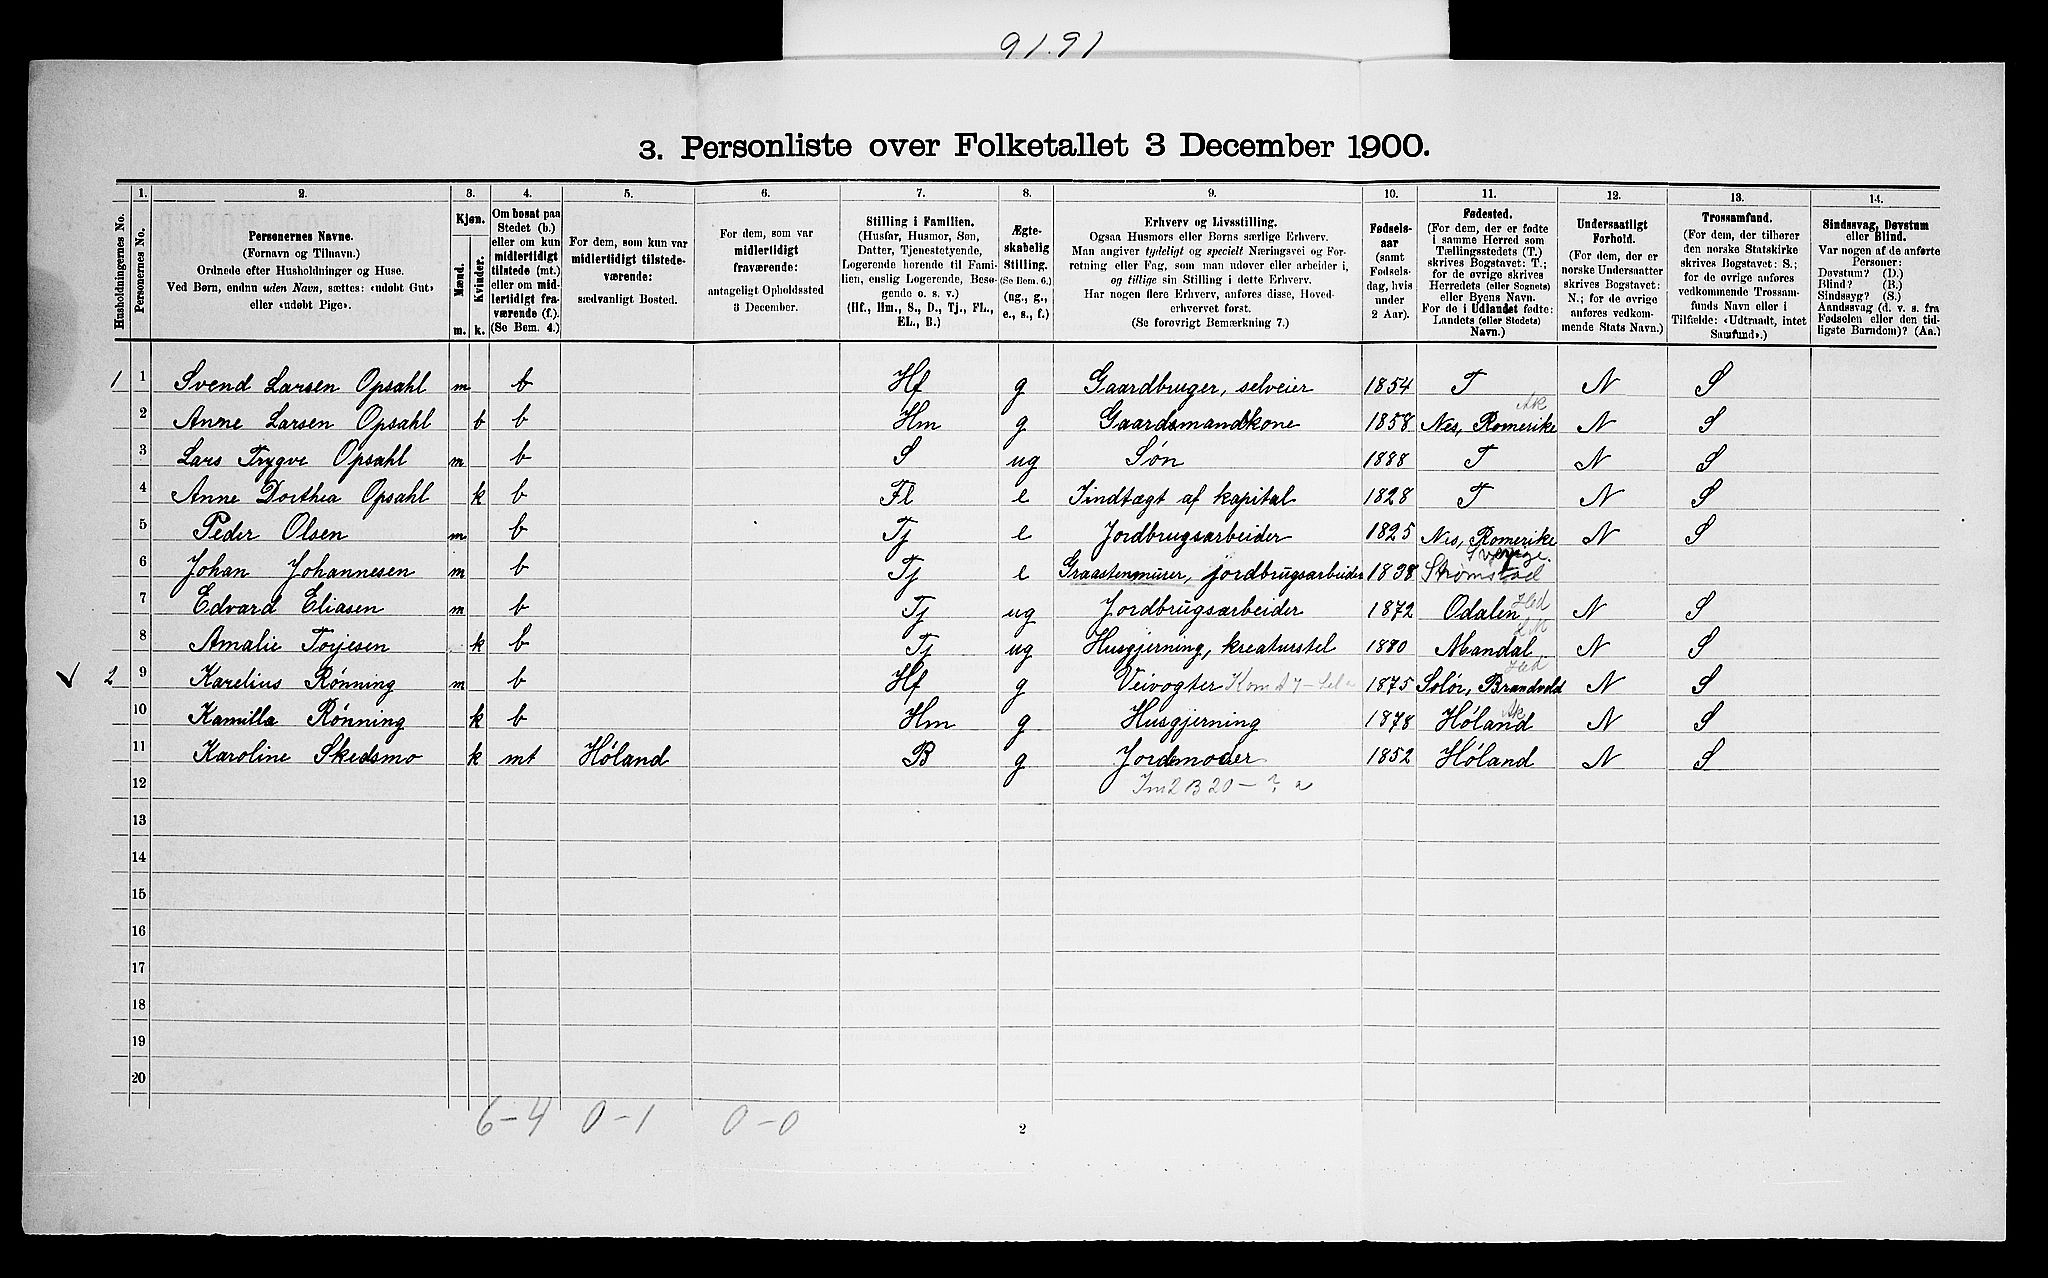 91.91
3. Personliste over Folketallet 3 December 1900.
Husholdningernes No.
1.
Personernes No.
2.
Personernes Navne.
(Fornavn og Tilnavn.)
Ordnede efter Husholdninger og Huse.
Ved Børn, endnu uden Navn, sættes: «udøbt Gut»
eller «udøbt Pige».
3.
Kjøn.
Mænd.
Kvinder.
m.
k.
4.
Om bosat paa
Stedet (b.)
eller om kun
midlertidigt
tilstede (mt.)
eller om mid-
lertidigt fra-
værende (f.).
(Se Bem. 4.)
5.
For dem, som kun var
midlertidigt tilstede-
værende:
sædvanligt Bosted.
6.
For dem, som var
midlertidigt
fraværende:
antageligt Opholdssted
3 December.
7.
Stilling i Familien.
(Husfar, Husmor, Søn,
Datter, Tjenestetyende,
Logerende hørende til Fami-
lien, enslig Logerende, Besø-
gende o. s. v.)
(Hf., Hm., S., D., Tj., FL.,
EL., B.)
8.
Ægte-
skabelig
Stilling.
(Se Bem. 6.)
(ug., g.,
e., s., f.)
9.
Erhverv og Livsstilling.
Ogsaa Husmors eller Børns særlige Erhverv.
Man angiver tydeligt og specielt Næringsvei og For-
retning eller Fag, som man udøver eller arbeider i,
og tillige sin Stilling i dette Erhverv.
Har nogen flere Erhverv, anføres disse, Hoved-
erhvervet først.
(Se forøvrigt Bemærkning 7.)
10.
Fødsels-
aar
(samt
Fødsels-
dag, hvis
under
2 Aar).
11.
Fødested.
(For dem, der er fødte
i samme Herred som
Tællingsstedets (T.)
skrives Bogstavet: T.;
for de øvrige skrives
Herredets (eller Sognets)
eller Byens Navn.
For de i Udlandet fødte:
Landets (eller Stedets)
Navn.)
12.
Undersaatligt
Forhold.
(For dem, der er
norske Undersaatter
skrives Bogstavet:
N.; for de øvrige
anføres vedkom-
mende Stats Navn.)
13.
Trossamfund.
(For dem, der tilhører
den norske Statskirke
skrives Bogstavet: S.;
for de øvrige anføres
vedkommende Trossam-
funds Navn eller i
Tilfælde: «Udtraadt, intet
Samfund».)
14.
Sindssvag, Døvstum
eller Blind.
Var nogen af de anførte
Personer:
Døvstum? (D.)
Blind? (B.)
Sindssyg? (S.)
Aandssvag (d. v. s. fra
Fødselen eller den tid-
ligste Barndom)? (Aa.)
1 1 Svend Larsen Opsahl m b Hf g Gaardbruger, selveier 1854 T N S
Ak
2 Anne Larsen Opsahl b b Hm g Gaardsmandkone 1858 Nes, Romerike N S
3 Lars Trygve Opsahl m b S ug Søn 1888 T N S
4 Anne Dorthea Opsahl k b Fl e Indtægt af kapital 1828 T N S
5 Peder Olsen m b Tj e Jordbrugsarbeider 1825 Nes, Romerike N S
Sverige.
6 Johan Johannesen m b Tj e Graastenmurer, jordbrugsarbeider 1838 Strømstad
Hed
7 Edvard Eliasen m b Tj ug Jordbrugsarbeider 1872 Odalen N S
8 Amalie Torjesen k b Tj ug Husgjerning, kreaturstel 1880 Mandal N S
Hed
2 9 Karelius Rønning m b Hf g Veivogter 1875 Solør, Brandvold N S
Ak
10 Kamilla Rønning k b Hm g Husgjerning 1878 Høland N S
11 Karoline Skedsmo k mt Høland B g Jordmoder 1852 Høland N S
12
13
14
15
16
17
18
19
20
6-4 0-1 0-0
2